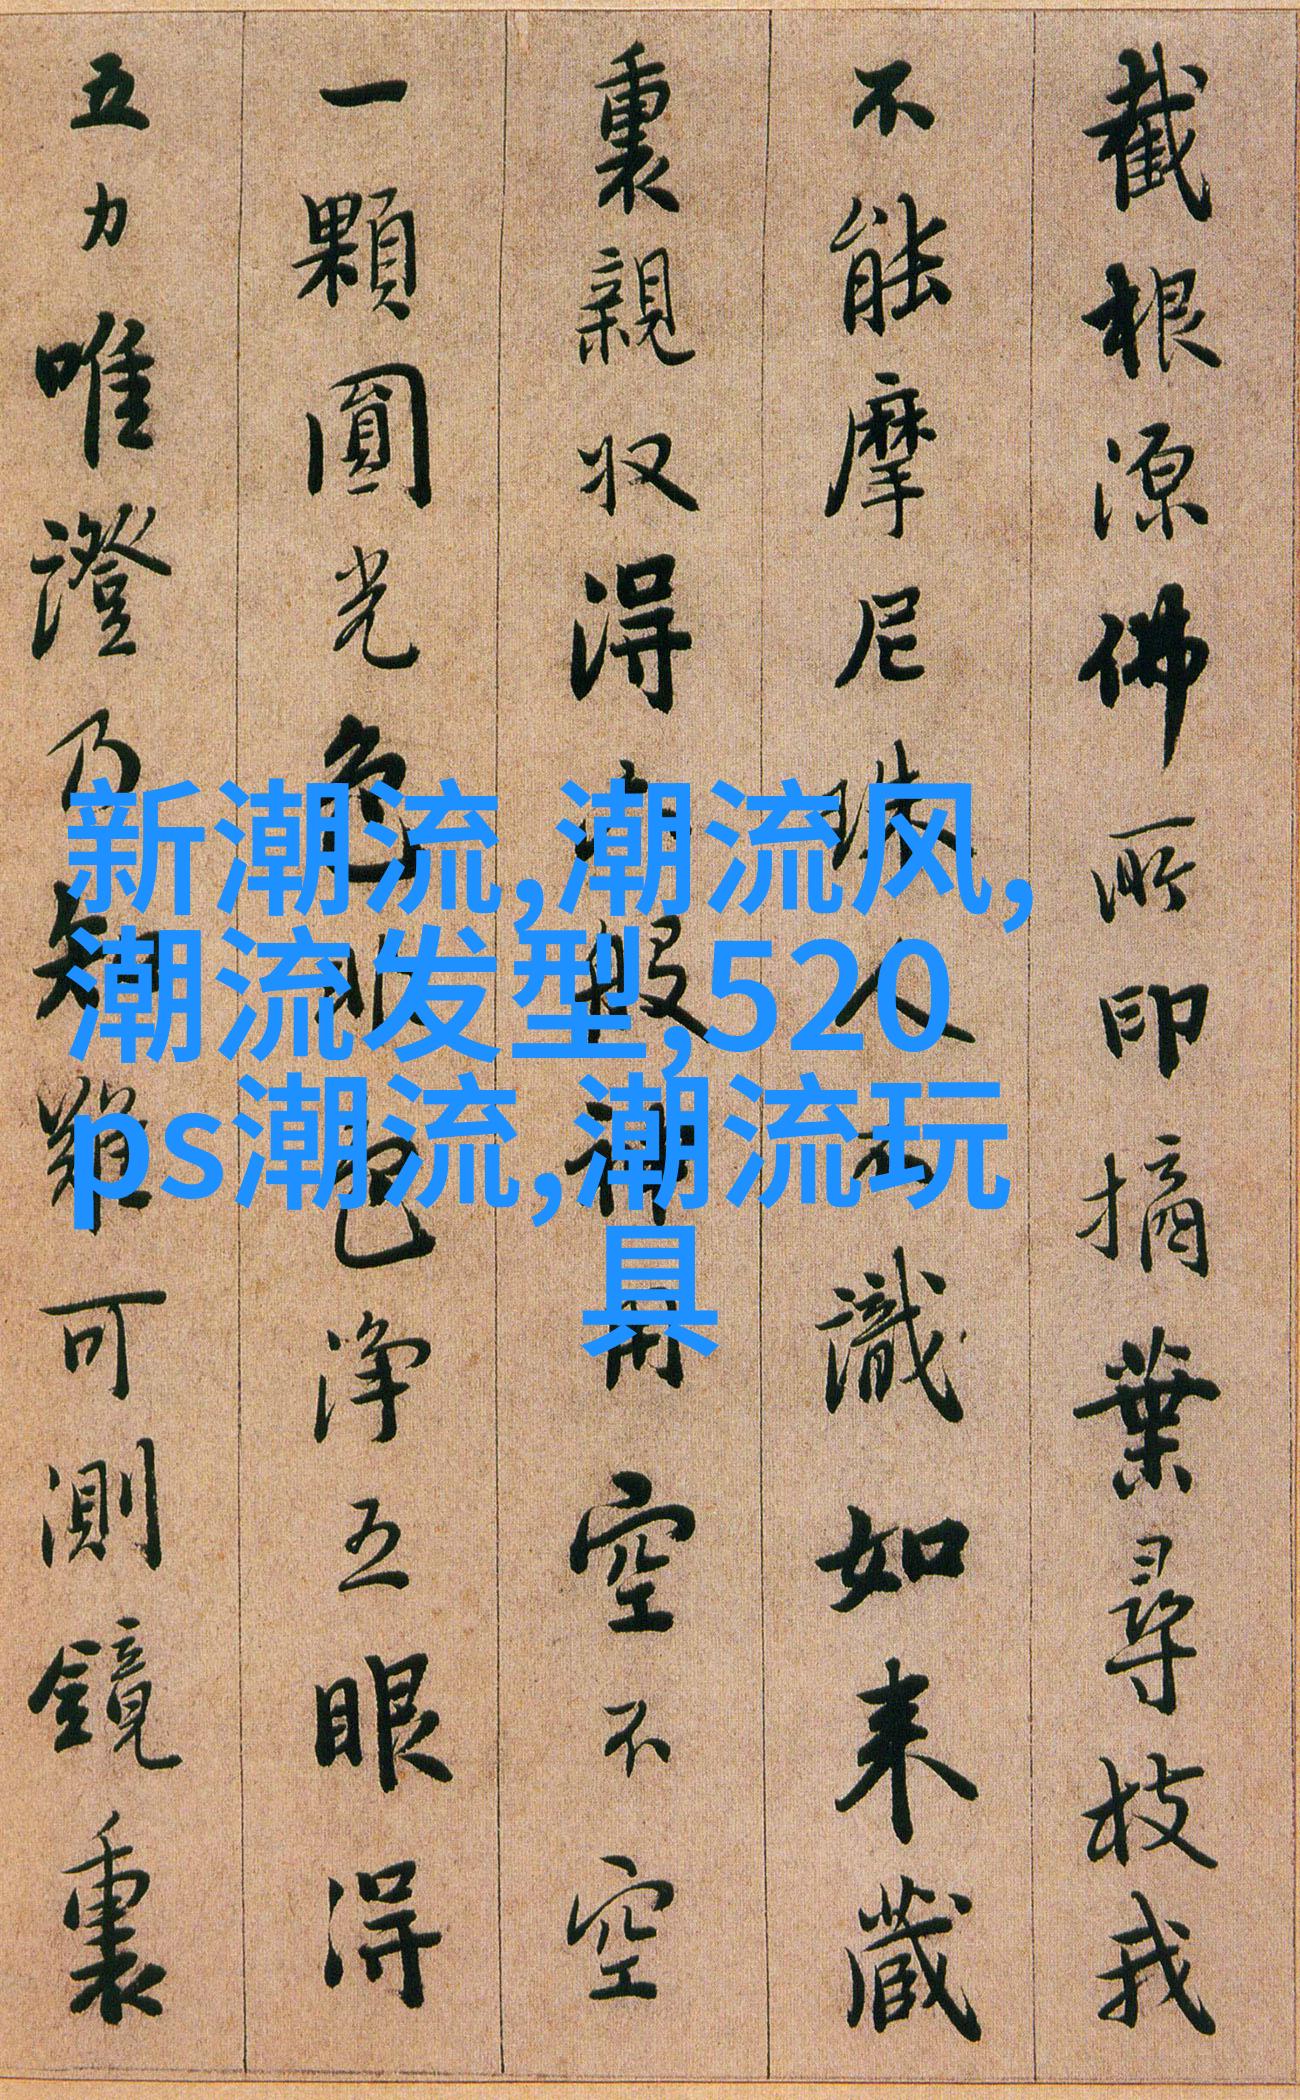 截根源佛所印摘葉尋枝我
不能摩尼珠人不識如来藏
裏親収得六般神用空不空
一顆圓光色非色淨五眼得
五力唯證乃知難可測鏡裏
新潮流,潮流风,
潮流发型,520
ps潮流,潮流玩
具